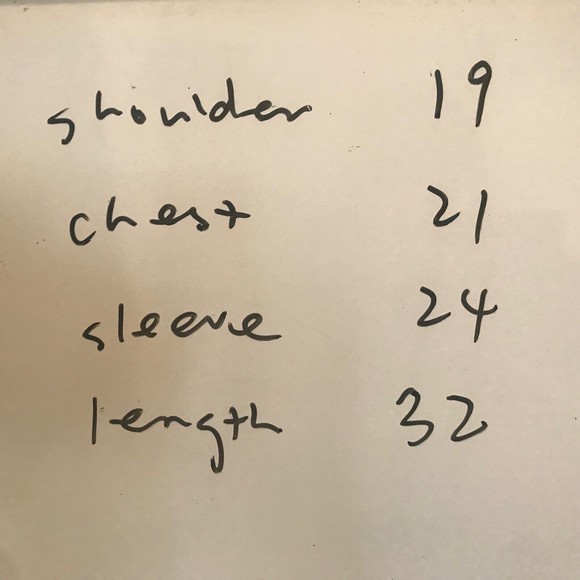 shoulder 19
chest 21
sleeve 24
length 32